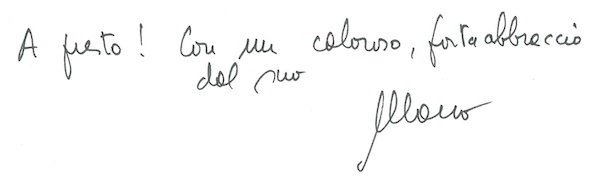 A presto! Con un caloroso, forte abbraccio
dal suo